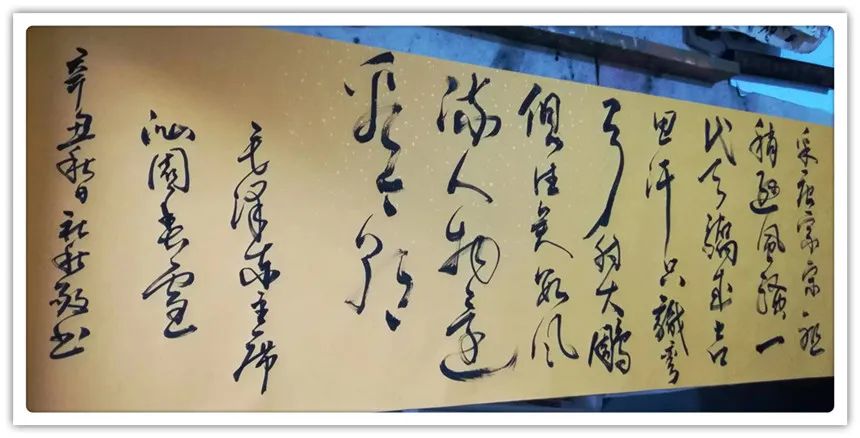 采唐宗宋祖
稍逊风騷一
代天驕成吉
思汗只識弯
弓射大鵰
俱往矣数风
流人物还
看今朝
毛泽东主席
沁园春雪
辛丑秋日 书